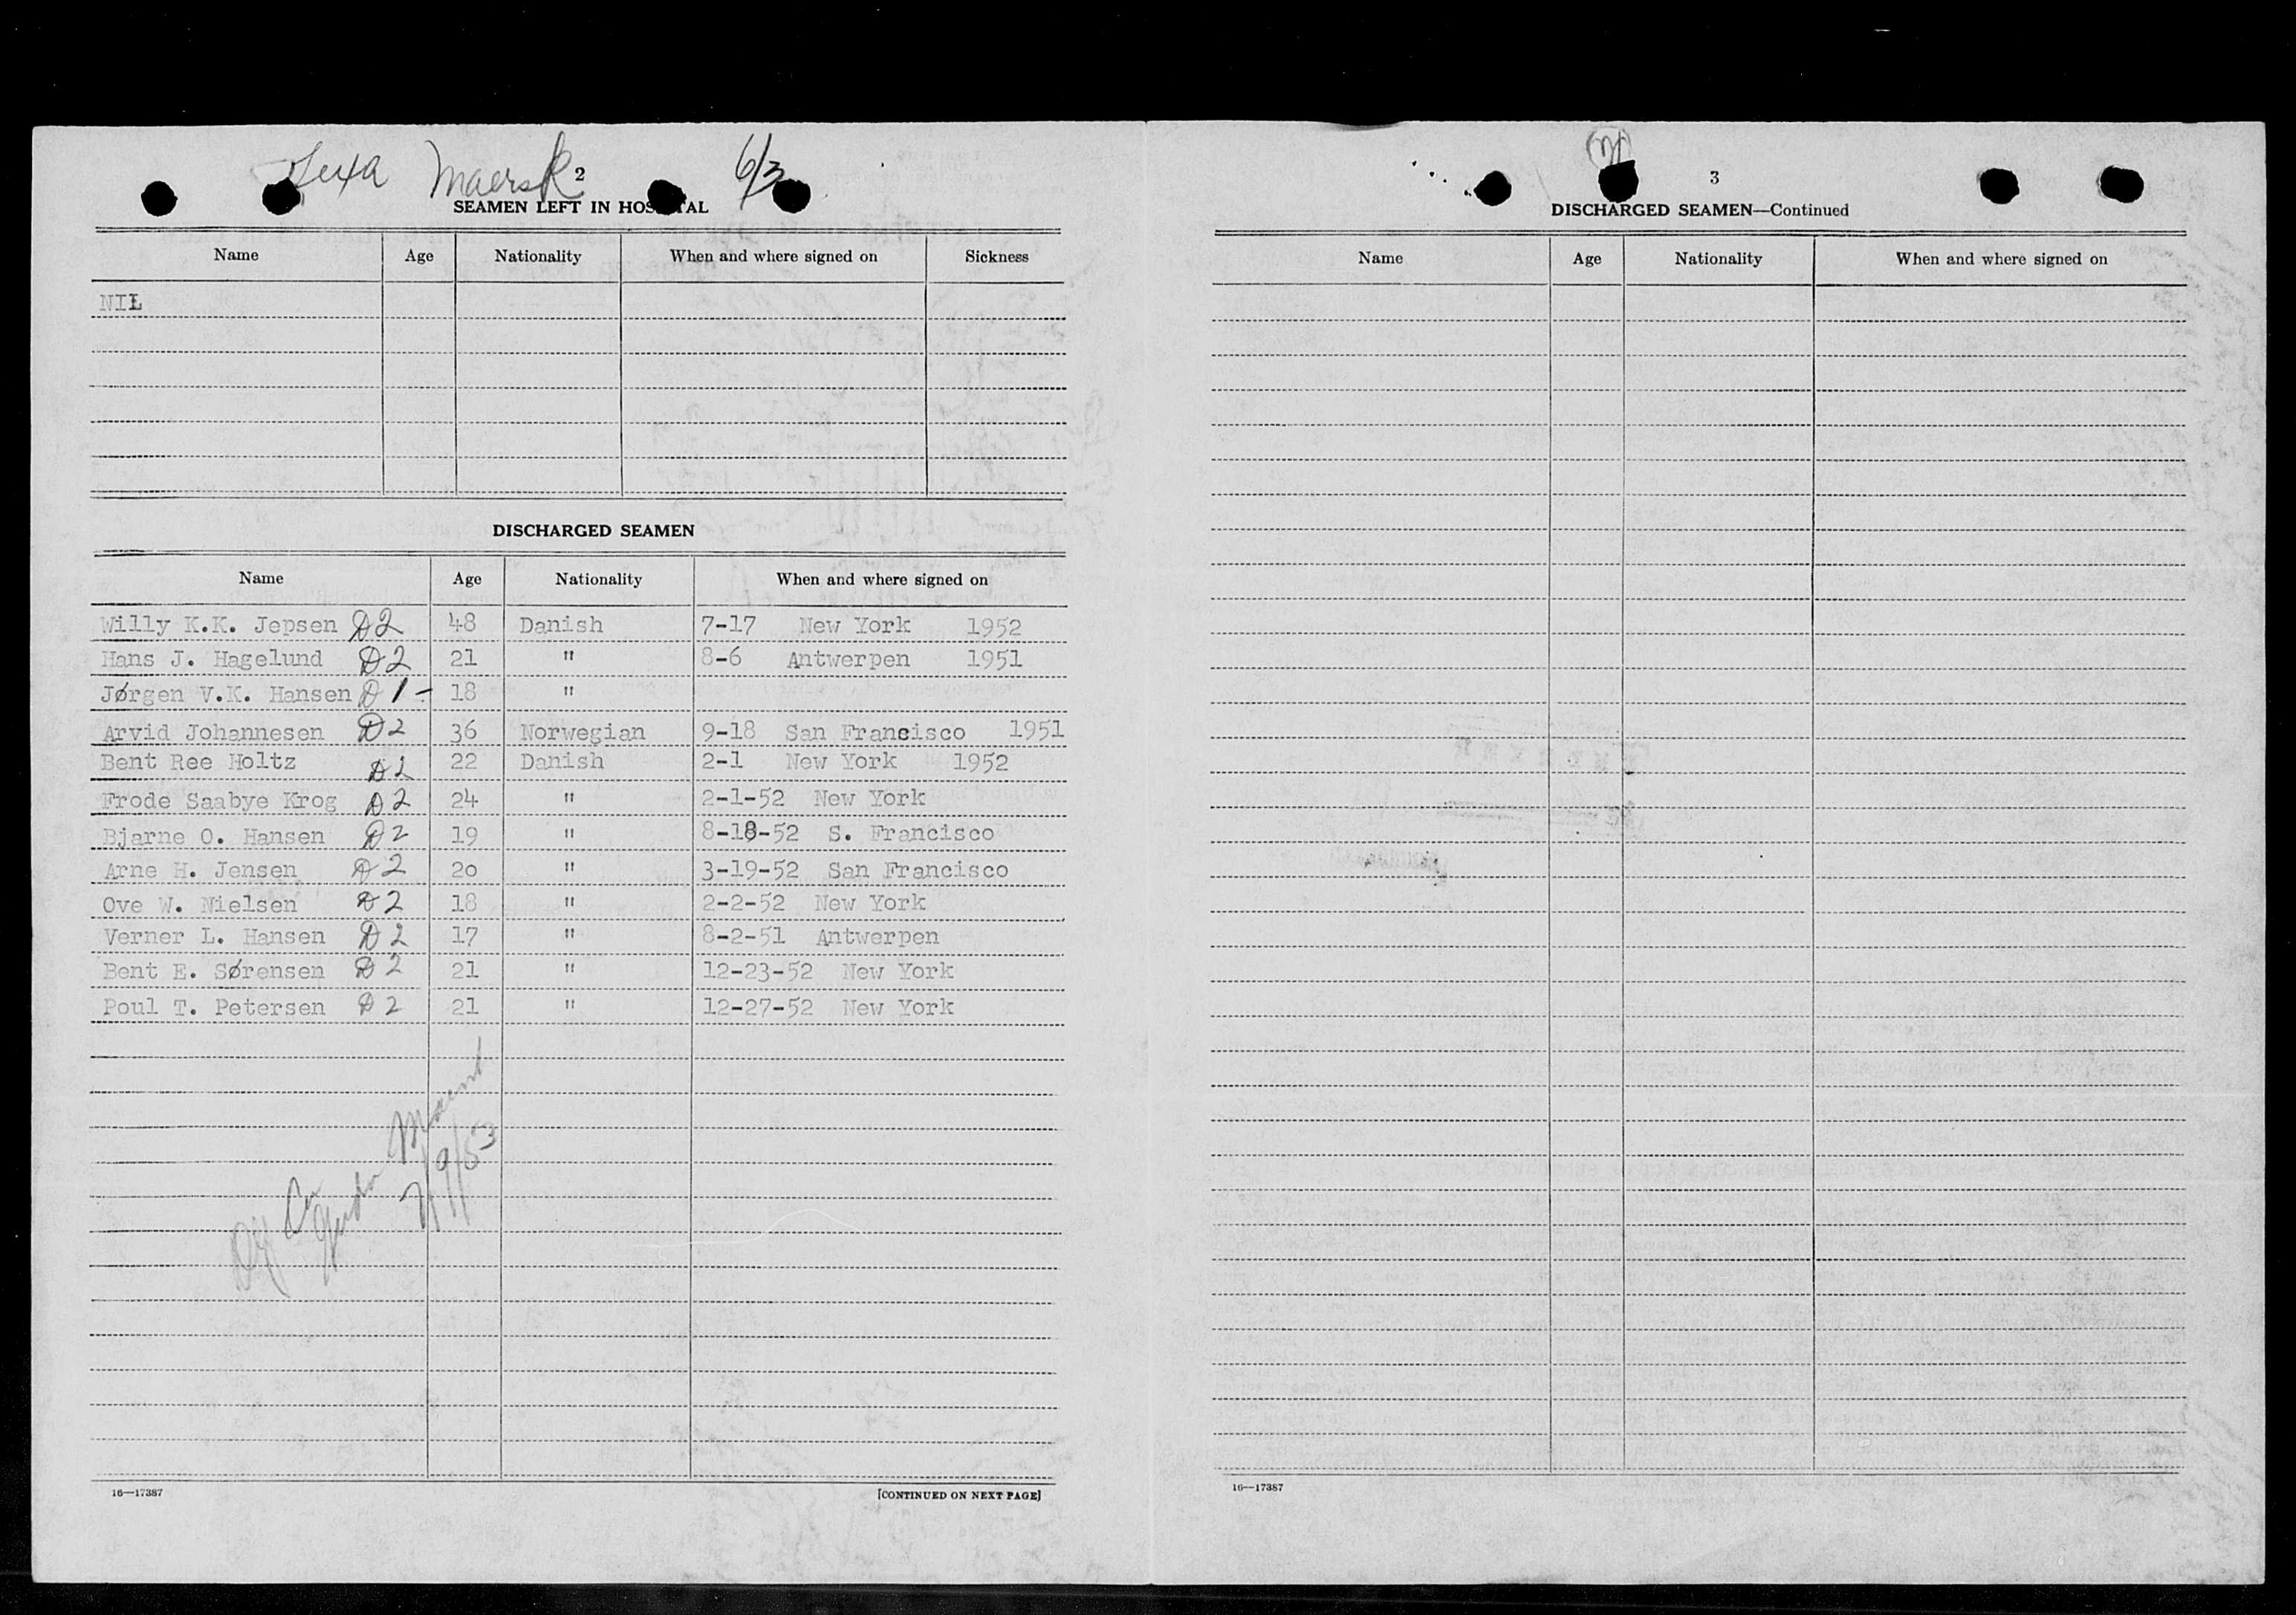 Maersk 6/3
2
SEAMEN LEFT IN HOS AL
Name Age Nationality When and where signed on Sickness
NIL
DISCHARGED SEAMEN
Name Age Nationality When and where signed on
Willy K.K. Jepsen D2 48 Danish 7-17 New York 1952
Hans J. Hagelund D2 21 " 8-6 Antwerpen 1951
Jørgen V.K. Hansen D1- 18 "
Arvid Johannesen D2 36 Norwegian 9-18 San Francisco 1951
Bent Ree Holtz D2 22 Danish 2-1 New York 1952
Frode Saabye Krog D2 24 " 2-1-52 New York
Bjarne O. Hansen D2 19 " 8-18-52 S. Francisco
Arne H. Jensen D2 20 " 3-19-52 San Francisco
Ove W. Nielsen D2 18 " 2-2-52 New York
Verner L. Hansen D2 17 " 8-2-51 Antwerpen
Bent E. Sørensen D2 21 " 12-23-52 New York
Poul T. Petersen D2 21 " 12-27-52 New York
16—17387 [CONTINUED ON NEXT PAGE]
3
DISCHARGED SEAMEN—Continued
Name Age Nationality When and where signed on
16—17387